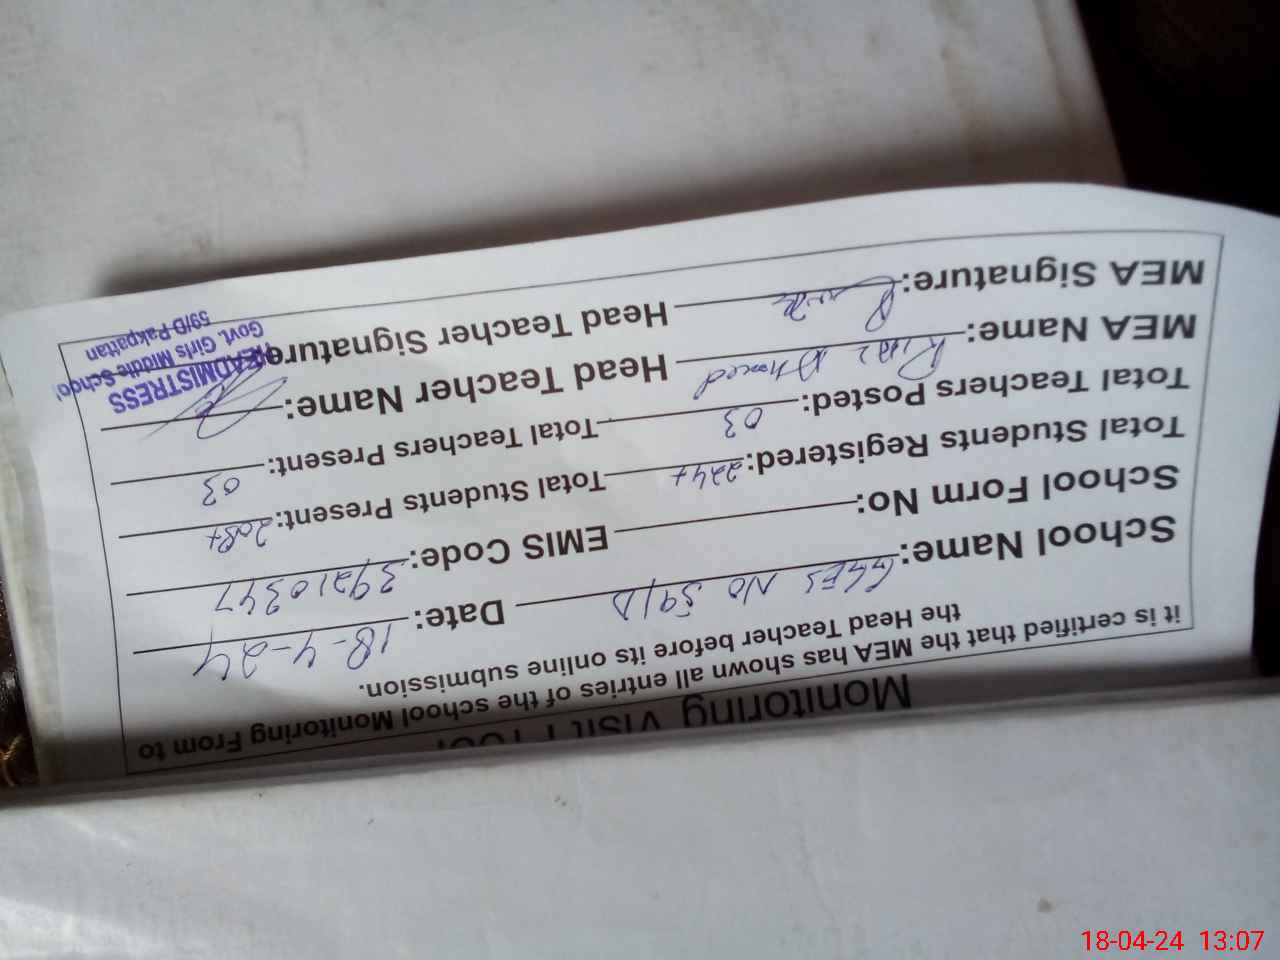 Monitoring Visit Proof
it is certified that the MEA has shown all entries of the school Monitoring From to
the Head Teacher before its online submission.
School Name: GGES NO 59/D Date: 18-4-24
School Form No: EMIS Code: 39210347
Total Students Registered: 224+ Total Students Present: 208+
Total Teachers Posted: 03 Total Teachers Present: 03
MEA Name: Ahmed Head Teacher Name:
MEA Signature: Head Teacher Signature
HEADMISTRESS
Govt. Girls Middle School
59/D Pakpattan
18-04-24 13:07